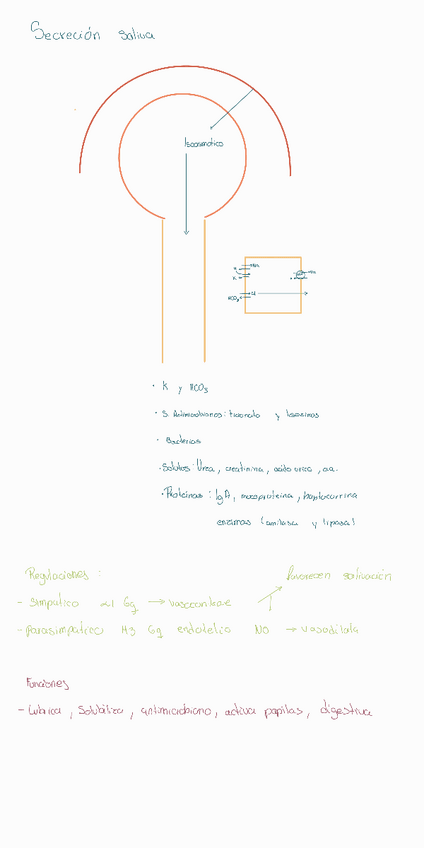 Secreción saliva
Isoosmotico
Na
H
K
HCO3
Cl
• K y HCO3
• S. Antimicrobianos: tiocianato y lisosimas
• Bacterias
• Solutos: Urea, creatinina, acido urico, aa.
• Proteinas: IgA, mucoproteina, haptocorrina
enzimas (amilasa y lipasa)
Regulaciones:
favorecen salivación
- Simpatico α1 Gq → vasocontrae
- Parasimpatico M3 Gq endotelio NO → vasodilata
Funciones
- Lubrica, Solubiliza, antimicrobiano, activa papilas, digestiva